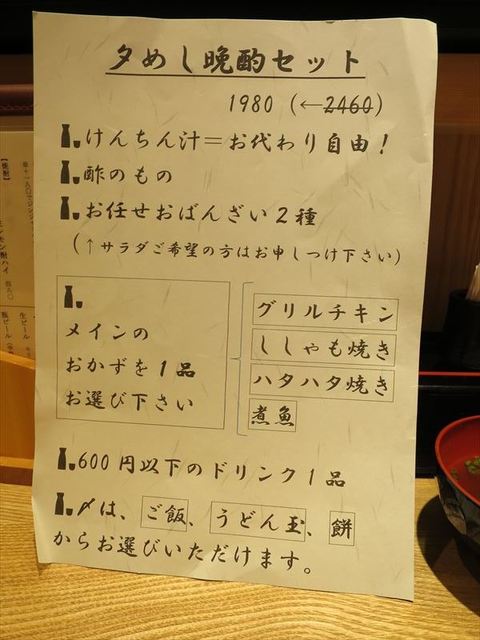 夕めし晩酌セット
1980 (←2460)
けんちん汁＝お代わり自由！
酢のもの
お任せおばんざい2種
(↑サラダご希望の方はお申しつけ下さい)
メインの
おかずを1品
お選び下さい
グリルチキン
ししゃも焼き
ハタハタ焼き
煮魚
600円以下のドリンク1品
〆は、ご飯、うどん玉、餅
からお選びいただけます。